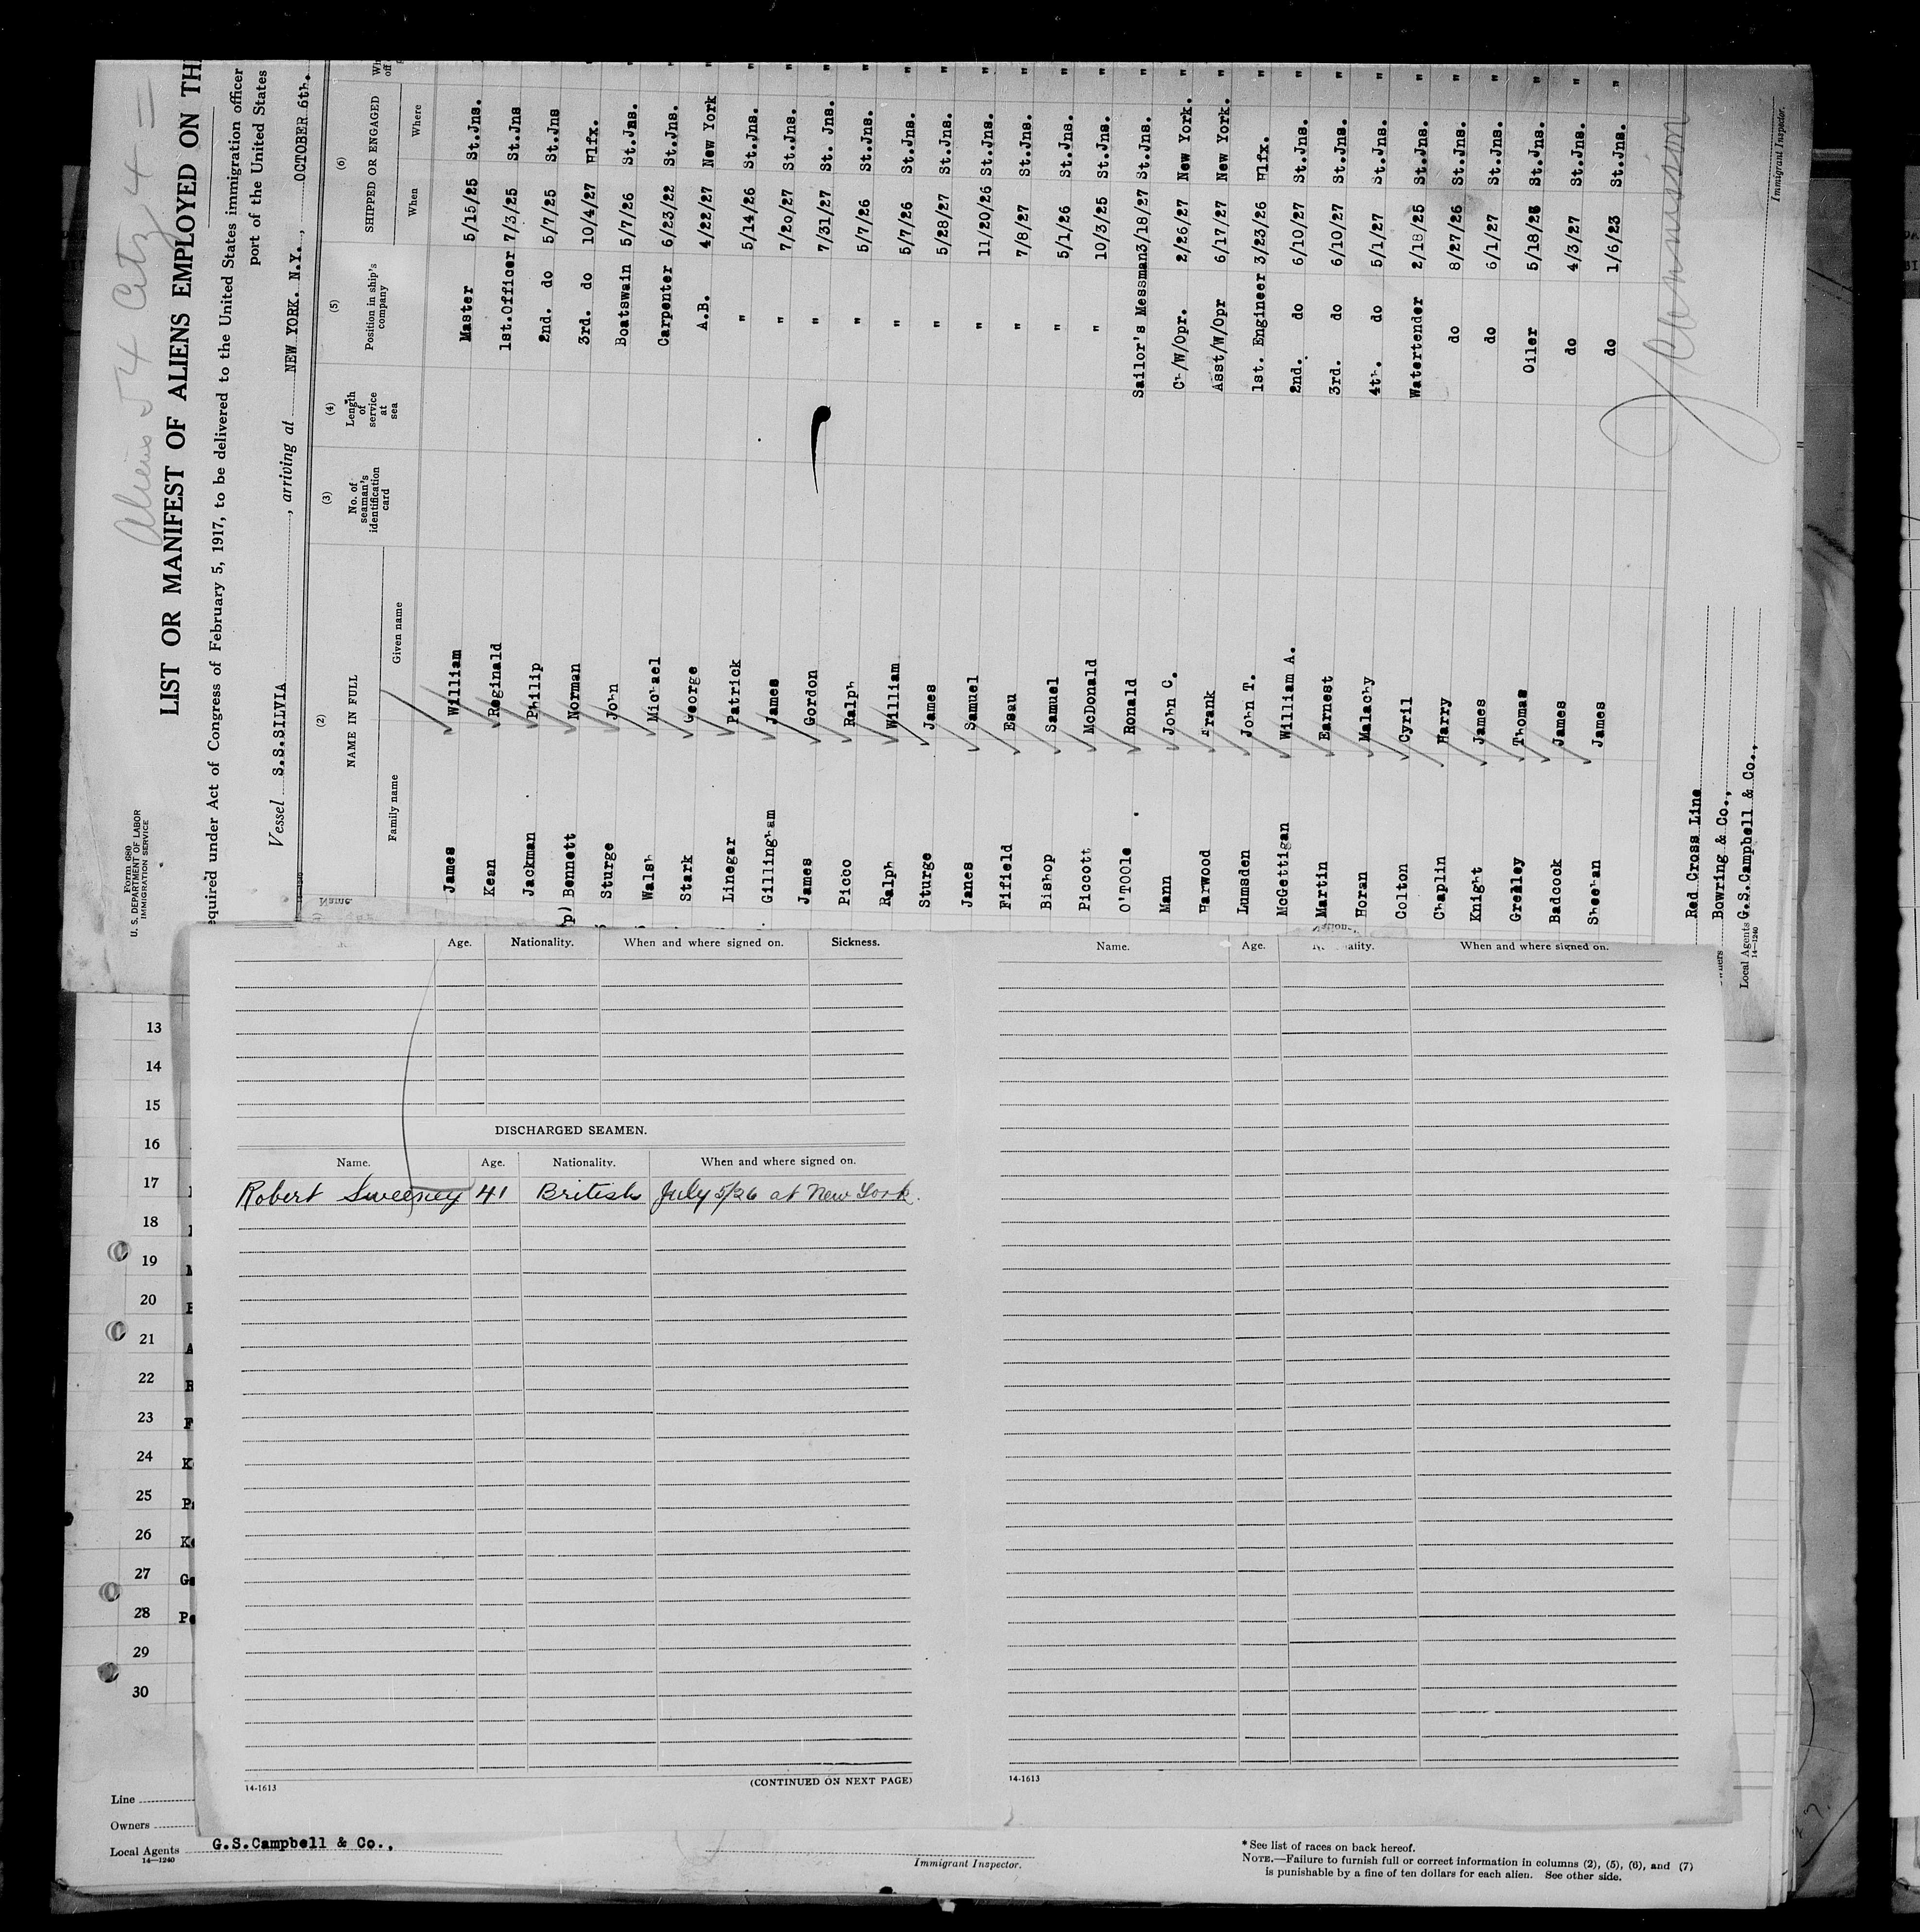 Aliens 54 Citz 4 =
Form 680
U. S. DEPARTMENT OF LABOR
IMMIGRATION SERVICE
LIST OR MANIFEST OF ALIENS EMPLOYED ON TH
equired under Act of Congress of February 5, 1917, to be delivered to the United States immigration officer
port of the United States
Vessel S.S.SILVIA, arriving at NEW YORK. N.Y., OCTOBER 6th.
(2) (3) (4) (5) (6)
NAME IN FULL No. of seaman's identification card Length of service at sea Position in ship's company SHIPPED OR ENGAGED
Family name Given name When Where
James William Master 5/15/25 St.Jns.
Kean Reginald 1st.Officer 7/3/25 St.Jns "
Jackman Philip 2nd. do 5/7/25 St.Jns "
p) Bennett Norman 3rd. do 10/4/27 Hlfx. "
Sturge John Boatswain 5/7/26 St.Jns. "
Walsh Michael Carpenter 6/23/22 St.Jns. "
Stark George A.B. 4/22/27 New York "
Linegar Patrick " 5/14/26 St.Jns. "
Gillingham James " 7/20/27 St.Jns. "
James Gordon " 7/31/27 St. Jns. "
Picco Ralph " 5/7/26 St.Jns. "
Ralph William " 5/7/26 St.Jns. "
Sturge James " 5/28/27 St.Jns. "
Janes Samuel " 11/20/26 St.Jns. "
Fifield Esau " 7/8/27 St.Jns. "
Bishop Samuel " 5/1/26 St.Jns. "
Piccott McDonald " 10/3/25 St.Jns. "
O'TOOle Ronald Sailor's Messman 3/18/27 St.Jns. "
Mann John C. Ch/W/Opr. 2/26/27 New York. "
Harwood Frank Asst/W/Opr 6/17/27 New York. "
Lumsden John T. 1st. Engineer 3/23/26 Hlfx. "
McGettigan William A. 2nd. do 6/10/27 St.Jns. "
Martin Earnest 3rd. do 6/10/27 St.Jns. "
Horan Malachy 4th. do 5/1/27 St.Jns. "
Colton Cyril Watertender 2/18/25 St.Jns. "
Chaplin Harry do 8/27/26 St.Jns. "
Knight James do 6/1/27 St.Jns. "
Grealey Thomas Oiler 5/18/26 St.Jns. "
Badcock James do 4/3/27 St.Jns. "
Sheehan James do 1/6/23 St.Jns. "
Immigrant Inspector.
Red Cross Line
Bowring & Co.,
Local Agents G.S.Campbell & Co.,
14—1240
Age. Nationality. When and where signed on. Sickness.
DISCHARGED SEAMEN.
Name. Age. Nationality. When and where signed on.
Robert Sweeney 41 British July 5/26 at New York.
14-1613
(CONTINUED ON NEXT PAGE)
Name. Age. When and where signed on.
14-1613
13
14
15
16
17
18
19
20
21
22
23
24
25
26
27
28
29
30
Line
Owners
Local Agents G.S.Campbell & Co.,
14—1240
Immigrant Inspector.
* See list of races on back hereof.
NOTE.—Failure to furnish full or correct information in columns (2), (5), (6), and (7)
is punishable by a fine of ten dollars for each alien. See other side.